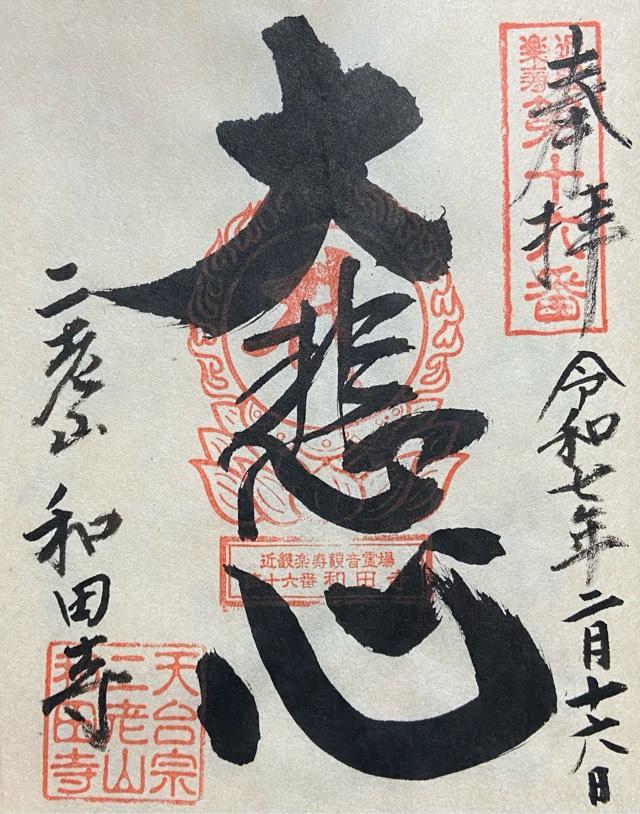 奉拝
令和七年二月十六日
近畿
楽寿
第十六番
大悲心
近畿楽寿観音霊場
第十六番 和田寺
二老山 和田寺
天台宗
二老山
和田寺